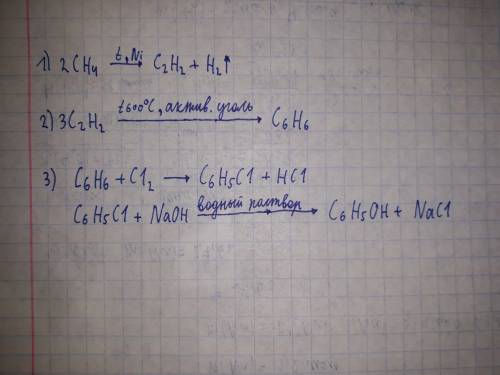 1) 2CH₄ t, Ni → C₂H₂ + H₂↑
2) 3C₂H₂ t 600°C, актив. уголь → C₆H₆
3) C₆H₆ + Cl₂ → C₆H₅Cl + HCl
C₆H₅Cl + NaOH водный раствор → C₆H₅OH + NaCl